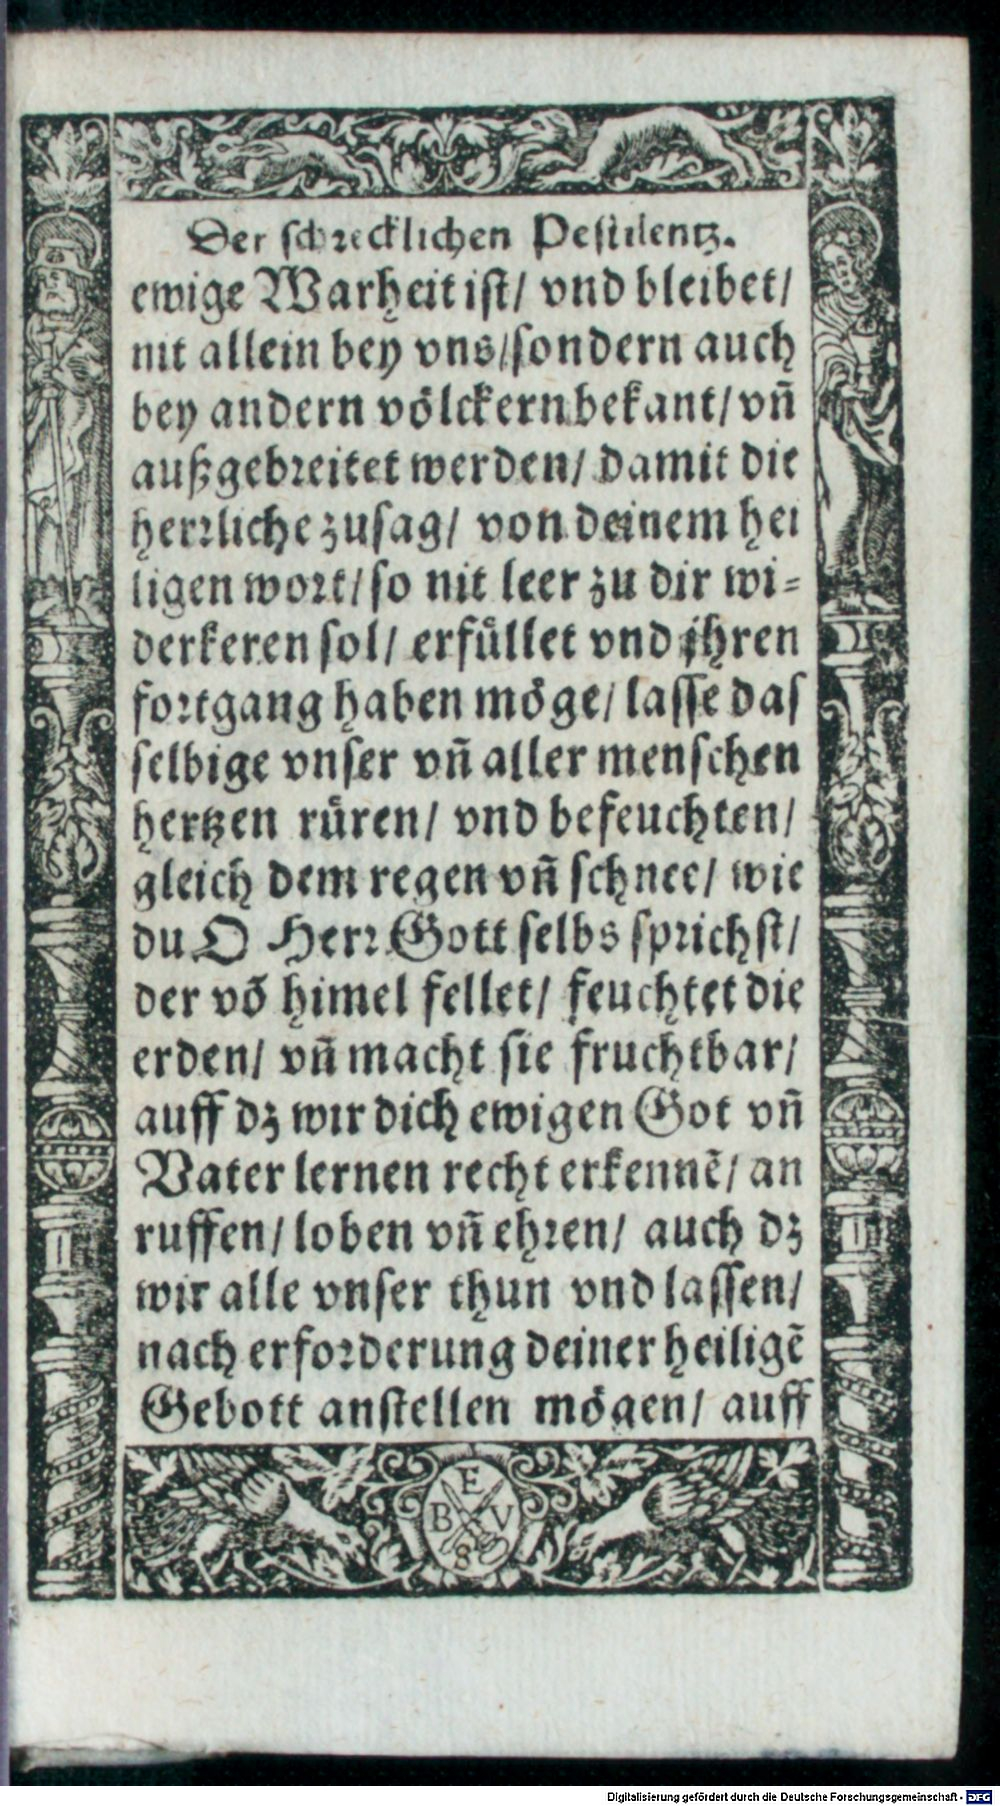 Der schrecklichen Pestilentz.
ewige Warheit ist/ vnd bleibet/
nit allein bey vns/sondern auch
bey andern völckern bekant/ vñ
außgebreitet werden/ damit die
herrliche zusag/ von deinem hei
ligen wort/ so nit leer zu dir wi-
derkeren sol/ erfüllet vnd ihren
fortgang haben möge/ lasse das
selbige vnser vñ aller menschen
hertzen rüren/ vnd befeuchten/
gleich dem regen vñ schnee/ wie
du O Herr Gott selbs sprichst/
der võ himel fellet/ feuchtet die
erden/ vñ macht sie fruchtbar/
auff dz wir dich ewigen Got vñ
Vater lernen recht erkennẽ/ an
ruffen/ loben vñ ehren/ auch dz
wir alle vnser thun vnd lassen/
nach erforderung deiner heiligẽ
Gebott anstellen mögen/ auff
E
B V
8
Digitalisierung gefördert durch die Deutsche Forschungsgemeinschaft - DFG